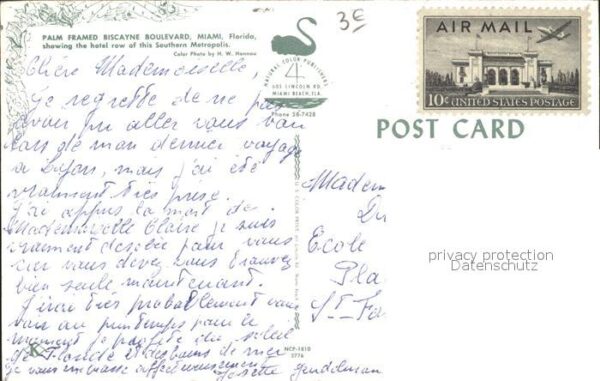 PALM FRAMED BISCAYNE BOULEVARD, MIAMI, Florida,
showing the hotel row of this Southern Metropolis.
Color Photo by H. W. Hannau
3€
NATIONAL COLOR PUBLISHERS
4
605 LINCOLN RD.
MIAMI BEACH, FLA.
Phone 58-7428
AIR MAIL
10¢ UNITED STATES POSTAGE
POST CARD
Chère Mademoiselle,
Je regrette de ne pas
avoir pu aller vous voir
lors de mon dernier voyage
à Luçon, mais j'ai été
vraiment très prise.
J'ai appris la mort de
Mademoiselle Claire je suis
vraiment désolée pour vous
car vous devez vous trouver
bien seule maintenant.
J'irai très probablement vous
voir au printemps pour le
moment je profite du soleil
de Floride et des bains de mer
je vous embrasse affectueusement
Josette
Madem
Du
Ecole
Pla
St Fa
privacy protection
Datenschutz
NCP-1810
3776
K